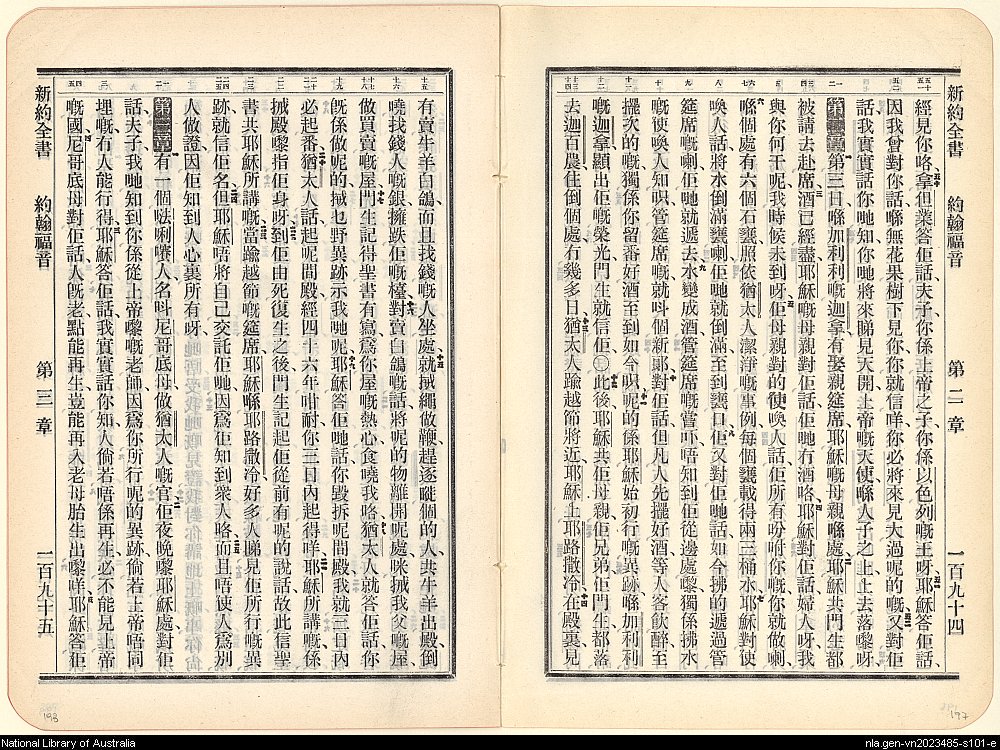 新約全書 約翰福音 第二章 一百九十四
經見你咯拿但業答佢話夫子你係上帝之子你係以色列嘅王呀耶穌答佢話
因我曾對你話喺無花果樹下見你你就信咩你必將來見大過呢的嘅又對佢
話我實實話你哋知你哋將來睇見天開上帝嘅天使喺人子之上上去落嚟呀
第二章第三日喺加利利嘅迦拿有娶親筵席耶穌嘅母親喺處耶穌共門生都
被請去赴席酒已經盡耶穌嘅母親對佢話佢哋冇酒咯耶穌對佢話婦人呀我
與你何干呢我時候未到呀佢母親對的使喚人話佢所有吩咐你嘅你就做喇
喺個處有六個石甕照依猶太人潔淨嘅事例每個甕載得兩三桶水耶穌對使
喚人話將水倒滿甕喇佢哋就倒滿至到甕口佢又對佢哋話如今拂的遞過管
筵席嘅喇佢哋就遞去水變成酒管筵席嘅嘗吓唔知到佢從邊處嚟獨係拂水
嘅使喚人知呮管筵席嘅就呌個新郎對佢話但凡人先擺好酒等人客飲醉至
擺次的嘅獨係你留番好酒至到如今呮呢的係耶穌始初行嘅異跡喺加利利
嘅迦拿顯出佢嘅榮光門生就信佢〇此後耶穌共佢母親佢兄弟佢門生都落
去迦百農住倒個處冇幾多日猶太人踰越節將近耶穌上耶路撒冷在殿裏見
有賣牛羊白鴿而且找錢嘅人坐處就搣繩做鞭趕逐嗰個的人共牛羊出殿倒
曉找錢人嘅銀擁跌佢嘅檯對賣白鴿嘅話將呢的物離開呢處咪搣我父嘅屋
做買賣嘅屋門生記得聖書有寫爲你屋嘅熱心食曉我咯猶太人就答佢話你
旣係做呢的搣乜野異跡示我哋呢耶穌答佢哋話你毀拆呢間殿我就三日內
必起番猶太人話起呢間殿經四十六年咁耐你三日內起得咩耶穌所講嘅係
搣殿嚟指佢身呀到佢由死復生之後門生記起佢從前有呢的說話故此信聖
書共耶穌所講嘅當踰越節嘅筵席耶穌喺耶路撒冷好多人睇見佢所行嘅異
跡就信佢名但耶穌唔將自己交託佢哋因爲佢知到衆人咯而且唔使人爲別
人做證因佢知到人心裏所有呀
第三章有一個𠵽唎嚽人名呌尼哥底母做猶太人嘅官佢夜晚嚟耶穌處對佢
話夫子我哋知到你係從上帝嚟嘅老師因爲你所行呢的異跡倘若上帝唔同
埋嘅冇人能行得耶穌答佢話我實實話你知人倘若唔係再生必不能見上帝
嘅國尼哥底母對佢話人旣老點能再生豈能再入老母胎生出嚟咩耶穌答佢
新約全書 約翰福音 第三章 一百九十五
193
197
National Library of Australia
nla.gen-vn2023485-s101-e